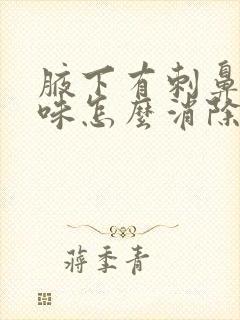 腋下有刺鼻
味怎麼消除
蔣季青